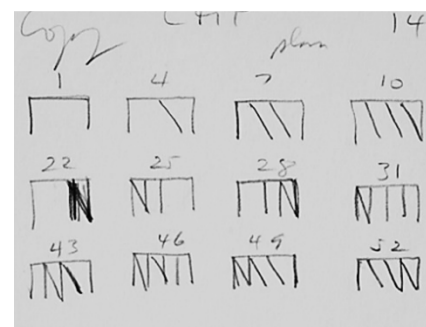 Copy
14
plan
1 4 7 10
22 25 28 31
43 46 49 52